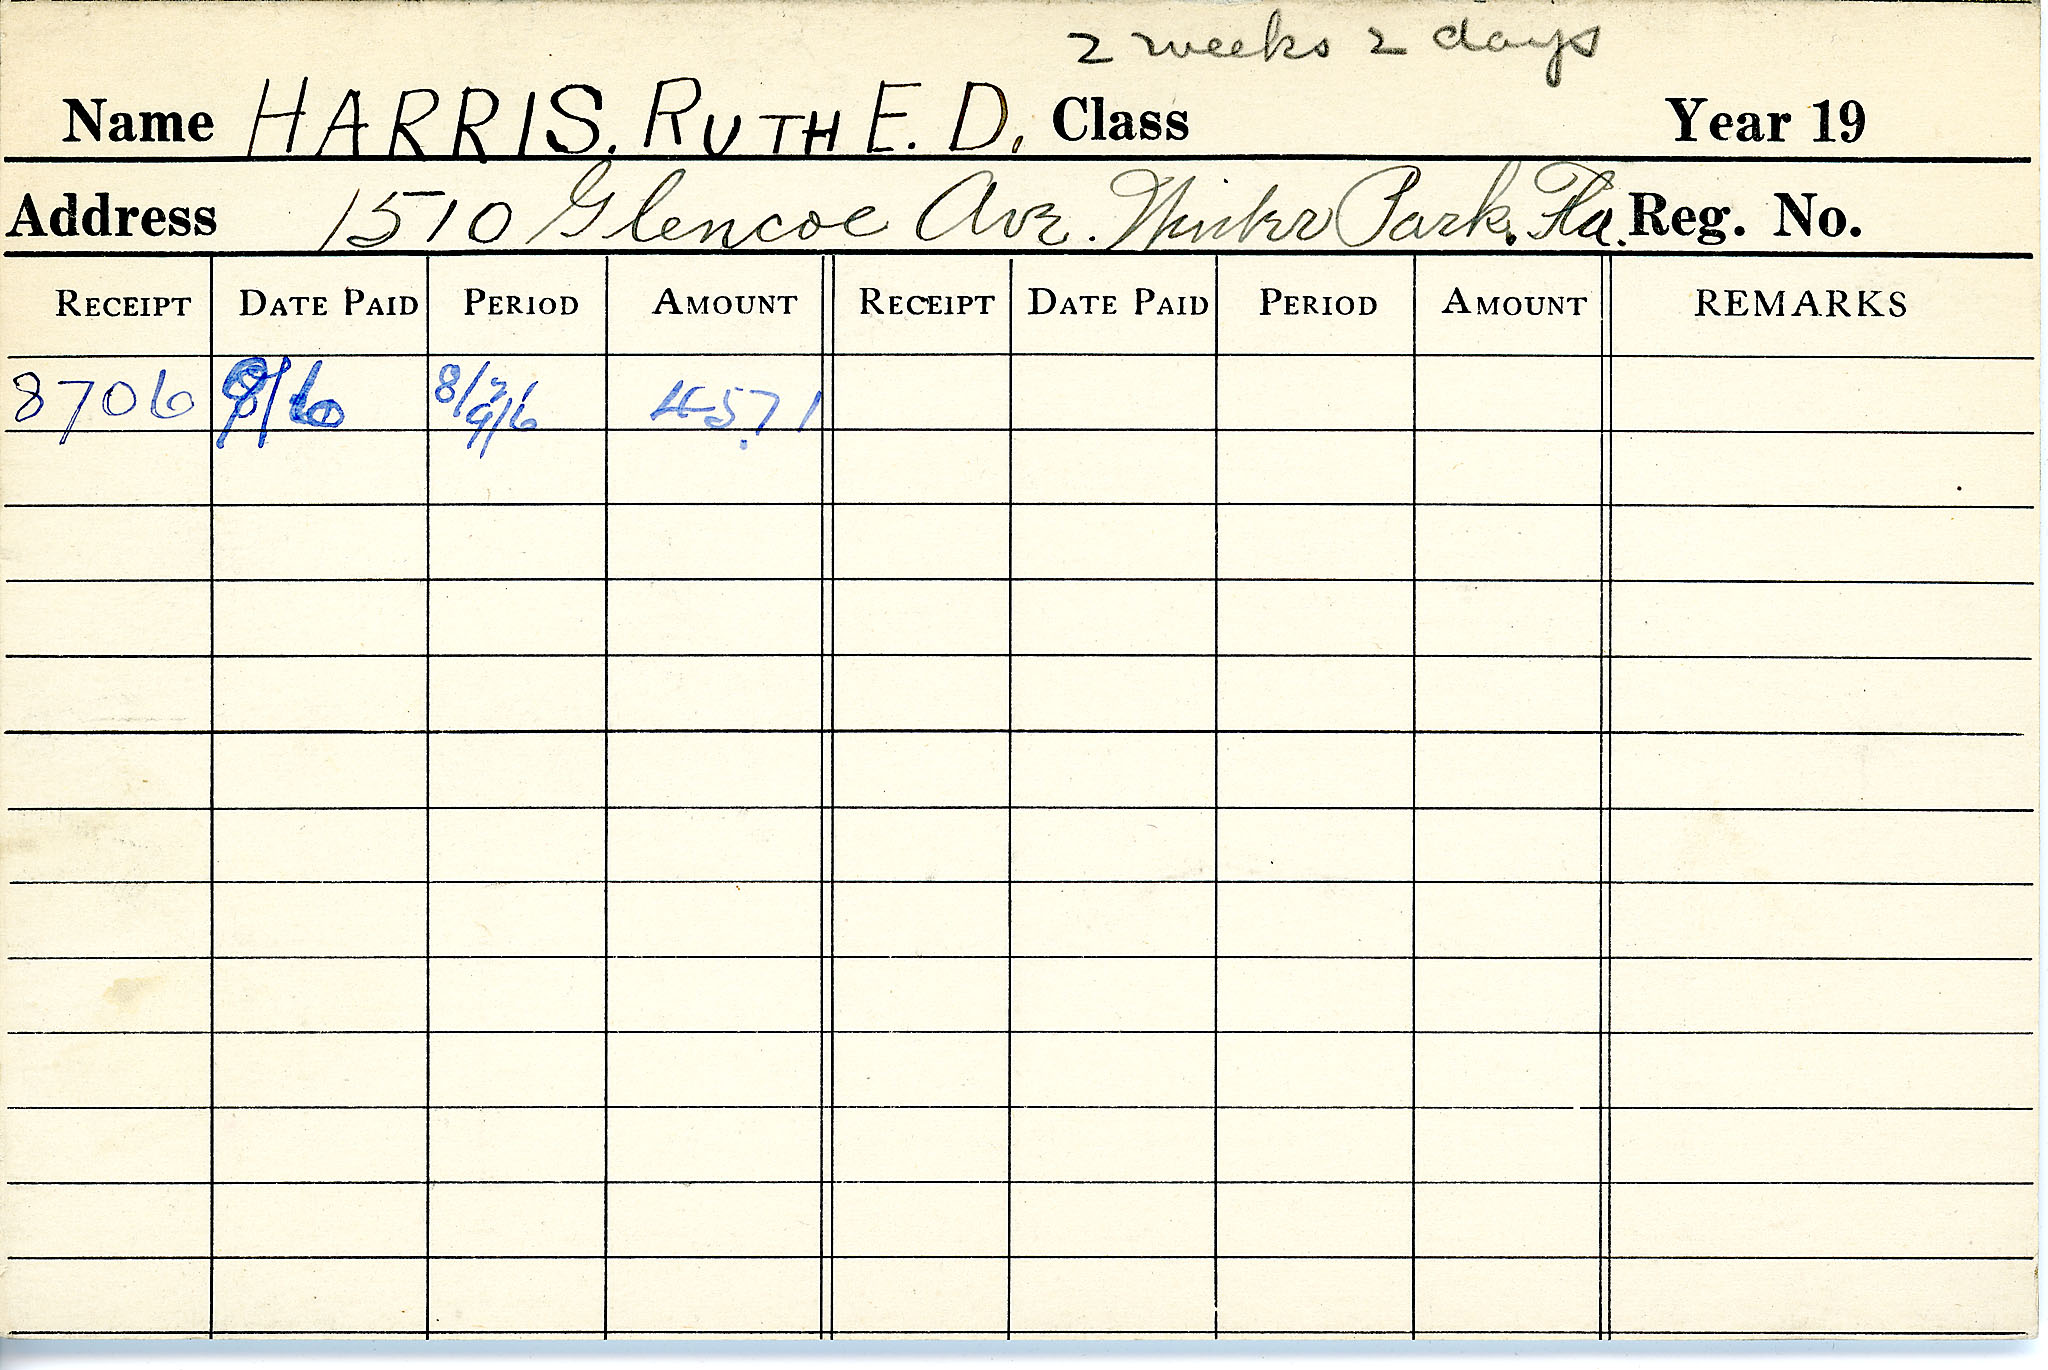 2 weeks 2 days
Name HARRIS, RUTH E. D. Class Year 19
Address 1510 Glencoe Ave. Winter Park, Fla. Reg. No.
RECEIPT DATE PAID PERIOD AMOUNT RECEIPT DATE PAID PERIOD AMOUNT REMARKS
8706 8/21 45.71
9/6